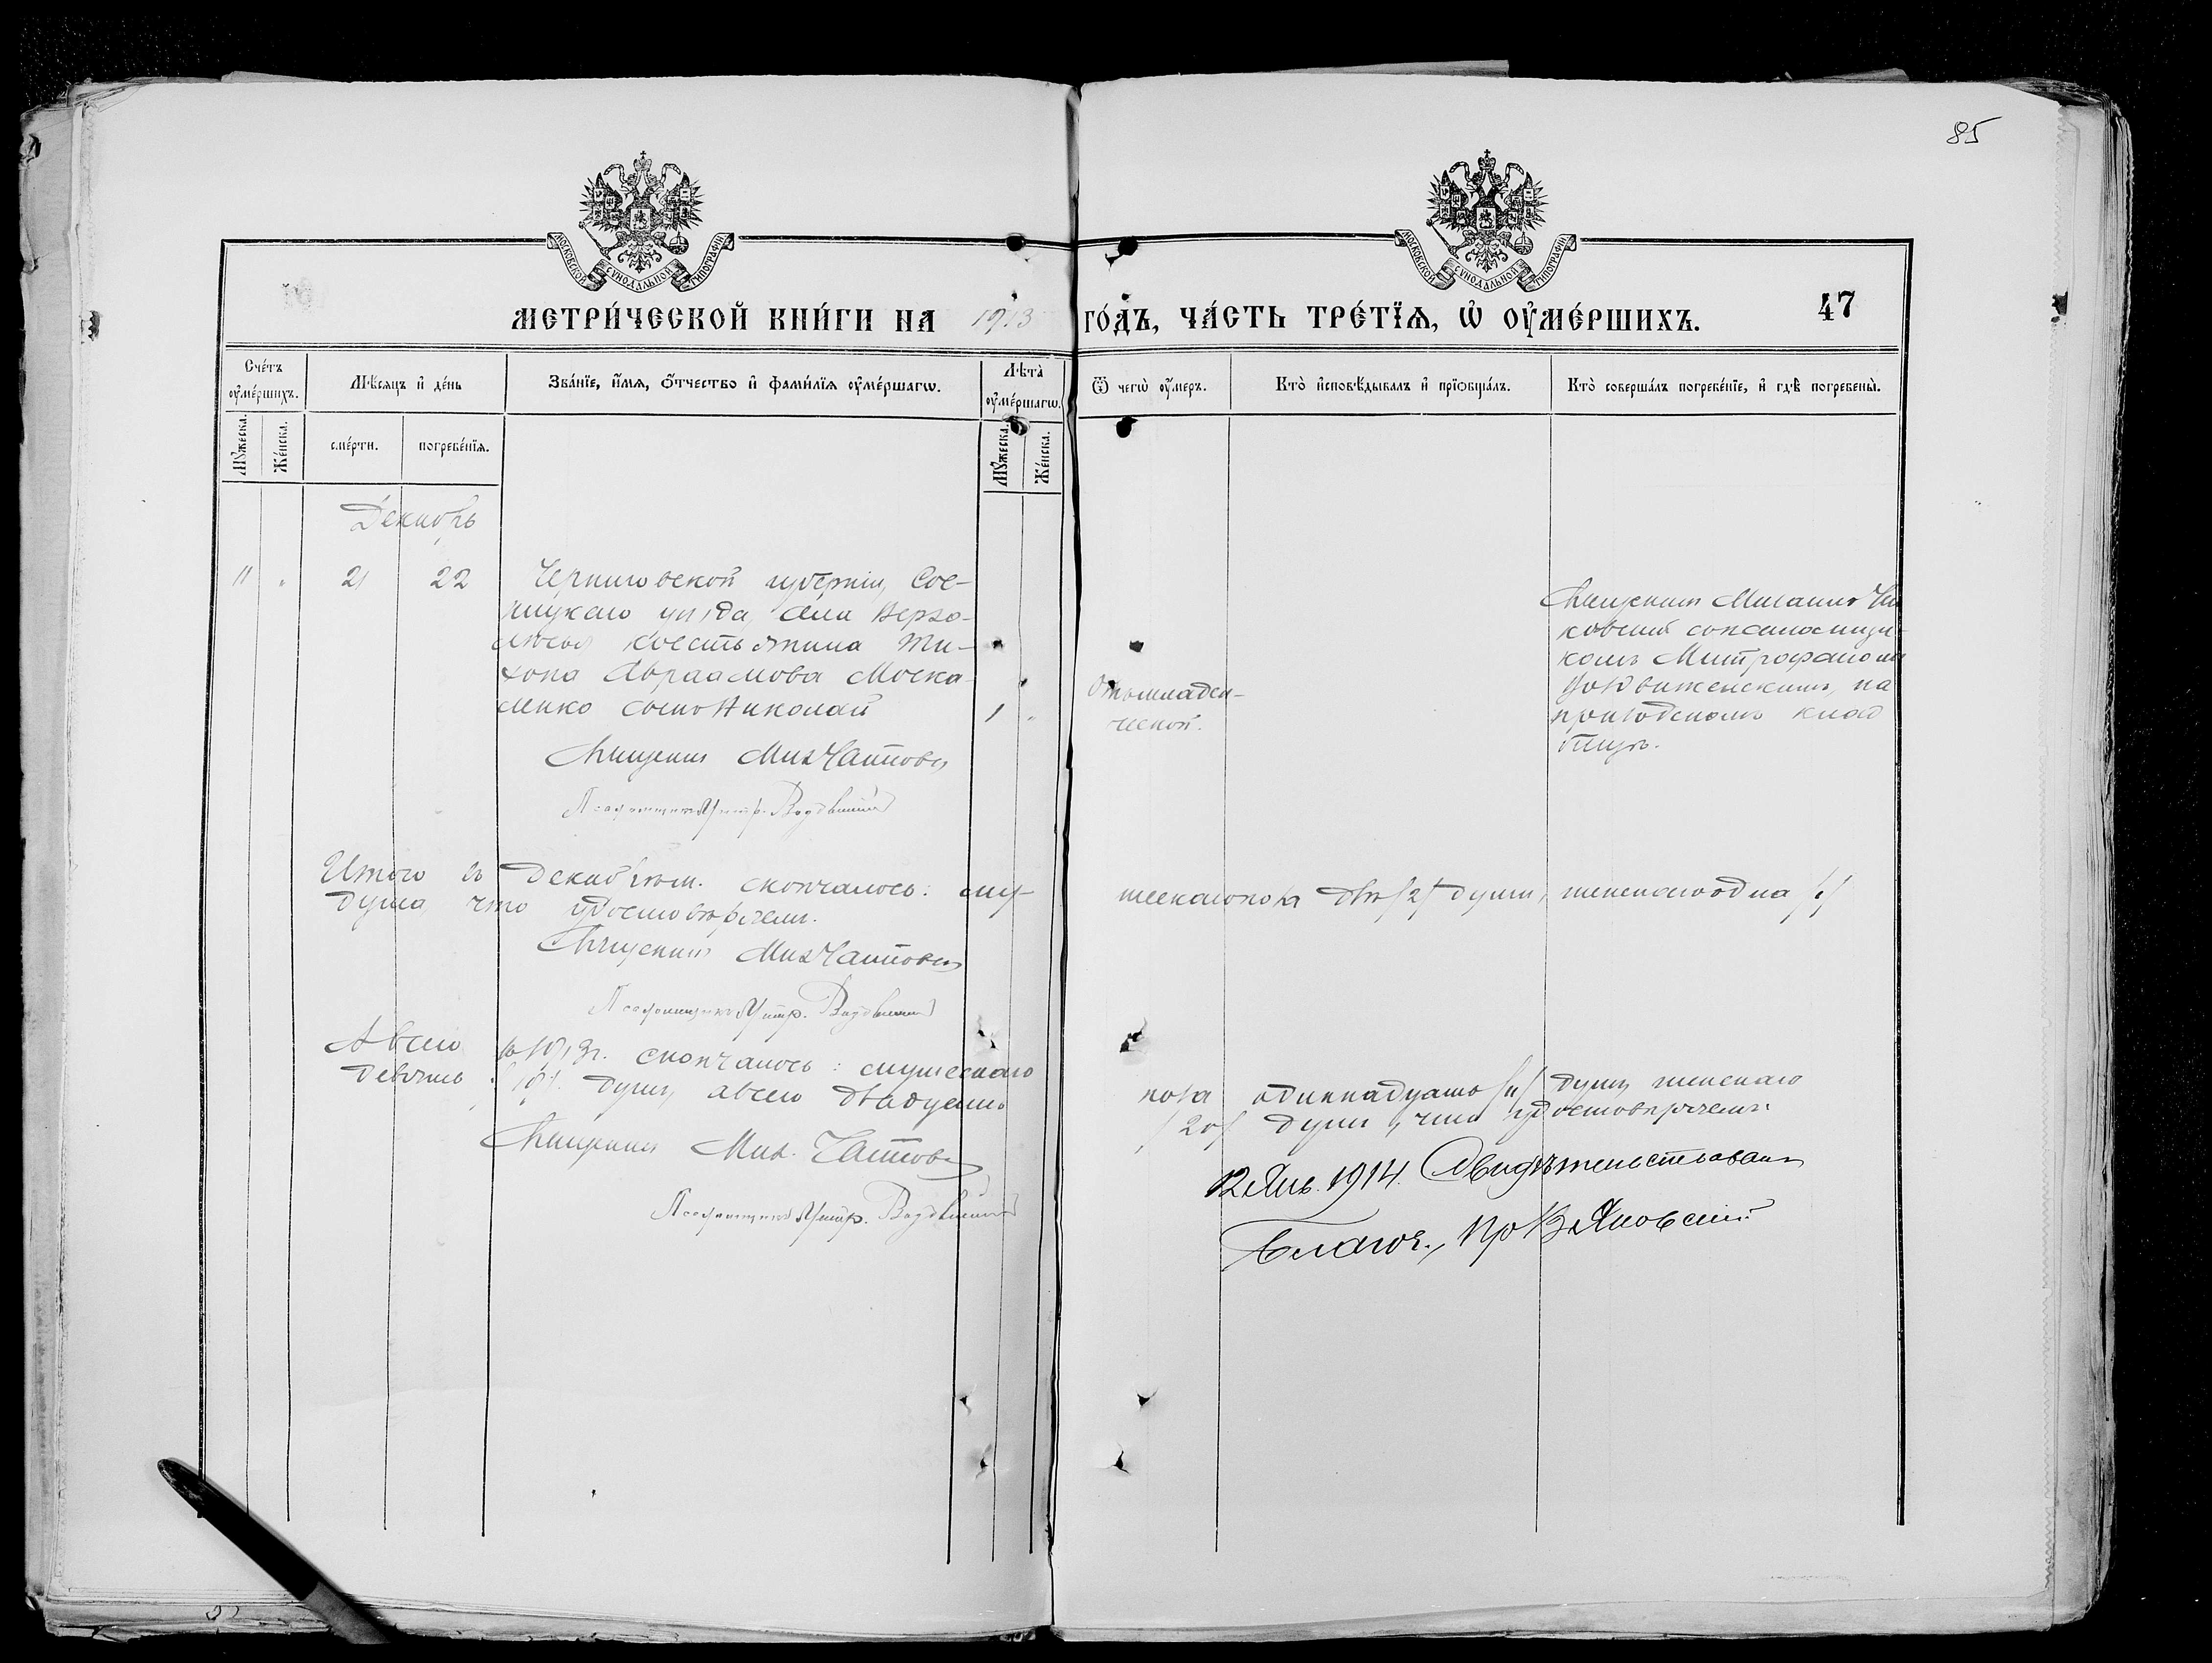 85
МОСКОВСКОЙ СУНОДАЛЬНОЙ ТИПОГРАФІИ
МОСКОВСКОЙ СУНОДАЛЬНОЙ ТИПОГРАФІИ
МЕТРИ́ЧЕСКОЙ КНИ́ГИ НА 1913 ГО́ДЪ, ЧА́СТЬ ТРЕ́ТЇѦ, Ѡ҆ ОУ҆МЕ́РШИХЪ.
47
Сче́тъ оу҆ме́ршихъ.
Мѣ́сѧцъ и҆ де́нь
Зва́нїе, и҆́мѧ, ѻ҆́тчество и҆ фами́лїѧ оу҆ме́ршагѡ.
Лѣта̀ оу҆ме́ршагѡ.
Ѿ чегѡ̀ оу҆́меръ.
Кто̀ и҆сповѣ́дывалъ и҆ прїѡбща́лъ.
Кто̀ соверша́лъ погребе́нїе, и҆ гдѣ̀ погребены̀.
Мꙋ́жеска.
Же́нска.
сме́рти.
погребе́нїѧ.
Мꙋ́жеска.
Же́нска.
Декабрь
11 " 21 22
Черниговской губерніи, Сос-
ницкаго уѣзда, села Верхо-
лѣсья крестьянина Ти-
хона Авраамова Моска-
ленко сынъ Николай
1 "
Отъ младен-
ческой.
Священникъ Михаилъ
ковскій съ псаломщи-
комъ Митрофаномъ
Воздвиженскимъ, на
приходскомъ клад
бищѣ.
Священникъ Мих
Псаломщикъ Митр.
Итого въ Декабрѣ м. скончалось: муж-
ескаго пола двѣ /2/ души, женскаго одна /1/
душа, что удостовѣряемъ.
Священникъ Мих
Псаломщикъ Митр.
А всего въ 1913 г. скончалось: мужескаго
пола одиннадцать /11/ душъ, женскаго
девять /9/ душъ, а всего двадцать
/20/ душъ, что удостовѣряемъ:
Священникъ Мих.
Псаломщикъ Митр.
12 Янв. 1914. Свидѣтельствовалъ
Благоч., Пр. В. Яновскій